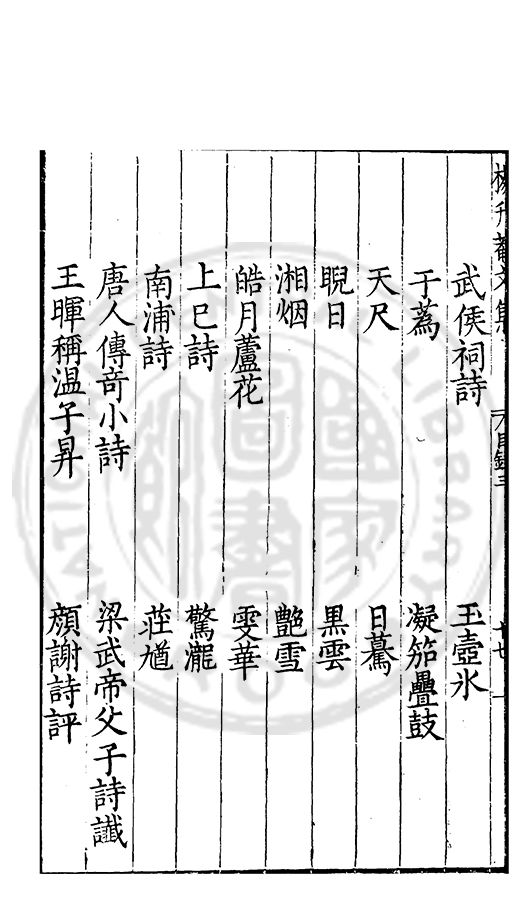 楊升菴文集
目錄三
十七
武侯祠詩 玉壺氷
于蒍 凝笳疊鼓
天尺 日驀
睨日 黒雲
湘烟 艷雪
皓月蘆花 雯華
上巳詩 驚瀧
南浦詩 莊馗
唐人傳竒小詩 梁武帝父子詩讖
王暉稱温子昇 顔謝詩評
國家圖書